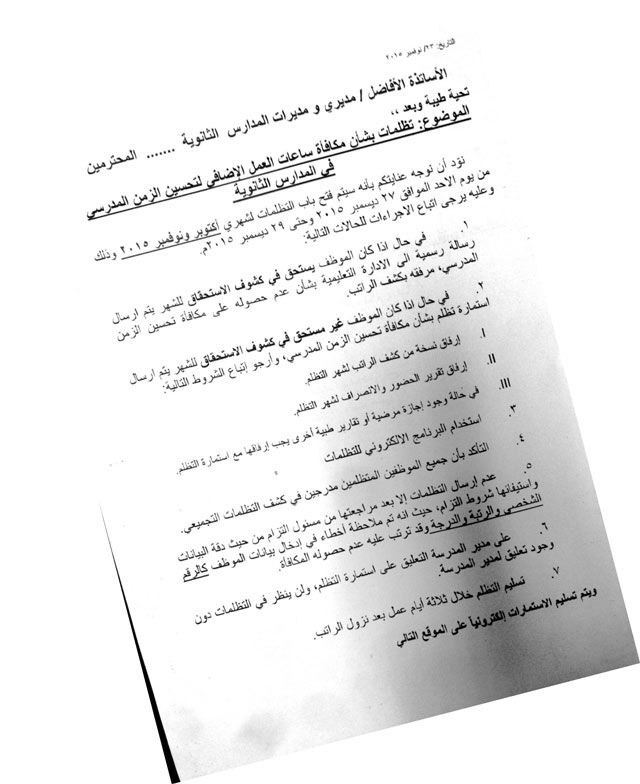 التاريخ: ٢٣/ نوفمبر ٢٠١٥
الأساتذة الأفاضل / مديري و مديرات المدارس الثانوية ....... المحترمين
تحية طيبة وبعد ،،
الموضوع: تظلمات بشأن مكافأة ساعات العمل الإضافي لتحسين الزمن المدرسي
في المدارس الثانوية
نؤد أن نوجه عنايتكم بأنه سيتم فتح باب التظلمات لشهري أكتوبر ونوفمبر ٢٠١٥ وذلك
من يوم الاحد الموافق ٢٧ ديسمبر ٢٠١٥ وحتى ٢٩ ديسمبر ٢٠١٥م.
وعليه يرجى اتباع الاجراءات للحالات التالية:
١. في حال اذا كان الموظف يستحق في كشوف الاستحقاق للشهر يتم ارسال
رسالة رسمية الى الادارة التعليمية بشأن عدم حصوله على مكافأة تحسين الزمن
المدرسي، مرفقه بكشف الراتب.
٢. في حال اذا كان الموظف غير مستحق في كشوف الاستحقاق للشهر يتم ارسال
استمارة تظلم بشأن مكافأة تحسين الزمن المدرسي، وأرجو إتباع الشروط التالية:
I. إرفاق نسخة من كشف الراتب لشهر التظلم.
II. إرفاق تقرير الحضور والانصراف لشهر التظلم.
III. في حالة وجود إجازة مرضية أو تقارير طبية أخرى يجب إرفاقها مع استمارة التظلم.
٣. استخدام البرنامج الالكتروني للتظلمات
٤. التأكد بأن جميع الموظفين المتظلمين مدرجين في كشف التظلمات التجميعي.
٥. عدم إرسال التظلمات إلا بعد مراجعتها من مسئول التزام من حيث دقة البيانات
واستيفائها شروط التزام، حيث انه تم ملاحظة أخطاء في إدخال بيانات الموظف كالرقم
الشخصي والرتبة والدرجة وقد ترتب عليه عدم حصوله المكافأة.
٦. على مدير المدرسة التعليق على استمارة التظلم، ولن ينظر في التظلمات دون
وجود تعليق لمدير المدرسة.
٧. تسليم التظلم خلال ثلاثة أيام عمل بعد نزول الراتب.
ويتم تسليم الاستمارات إلكترونياً على الموقع التالي